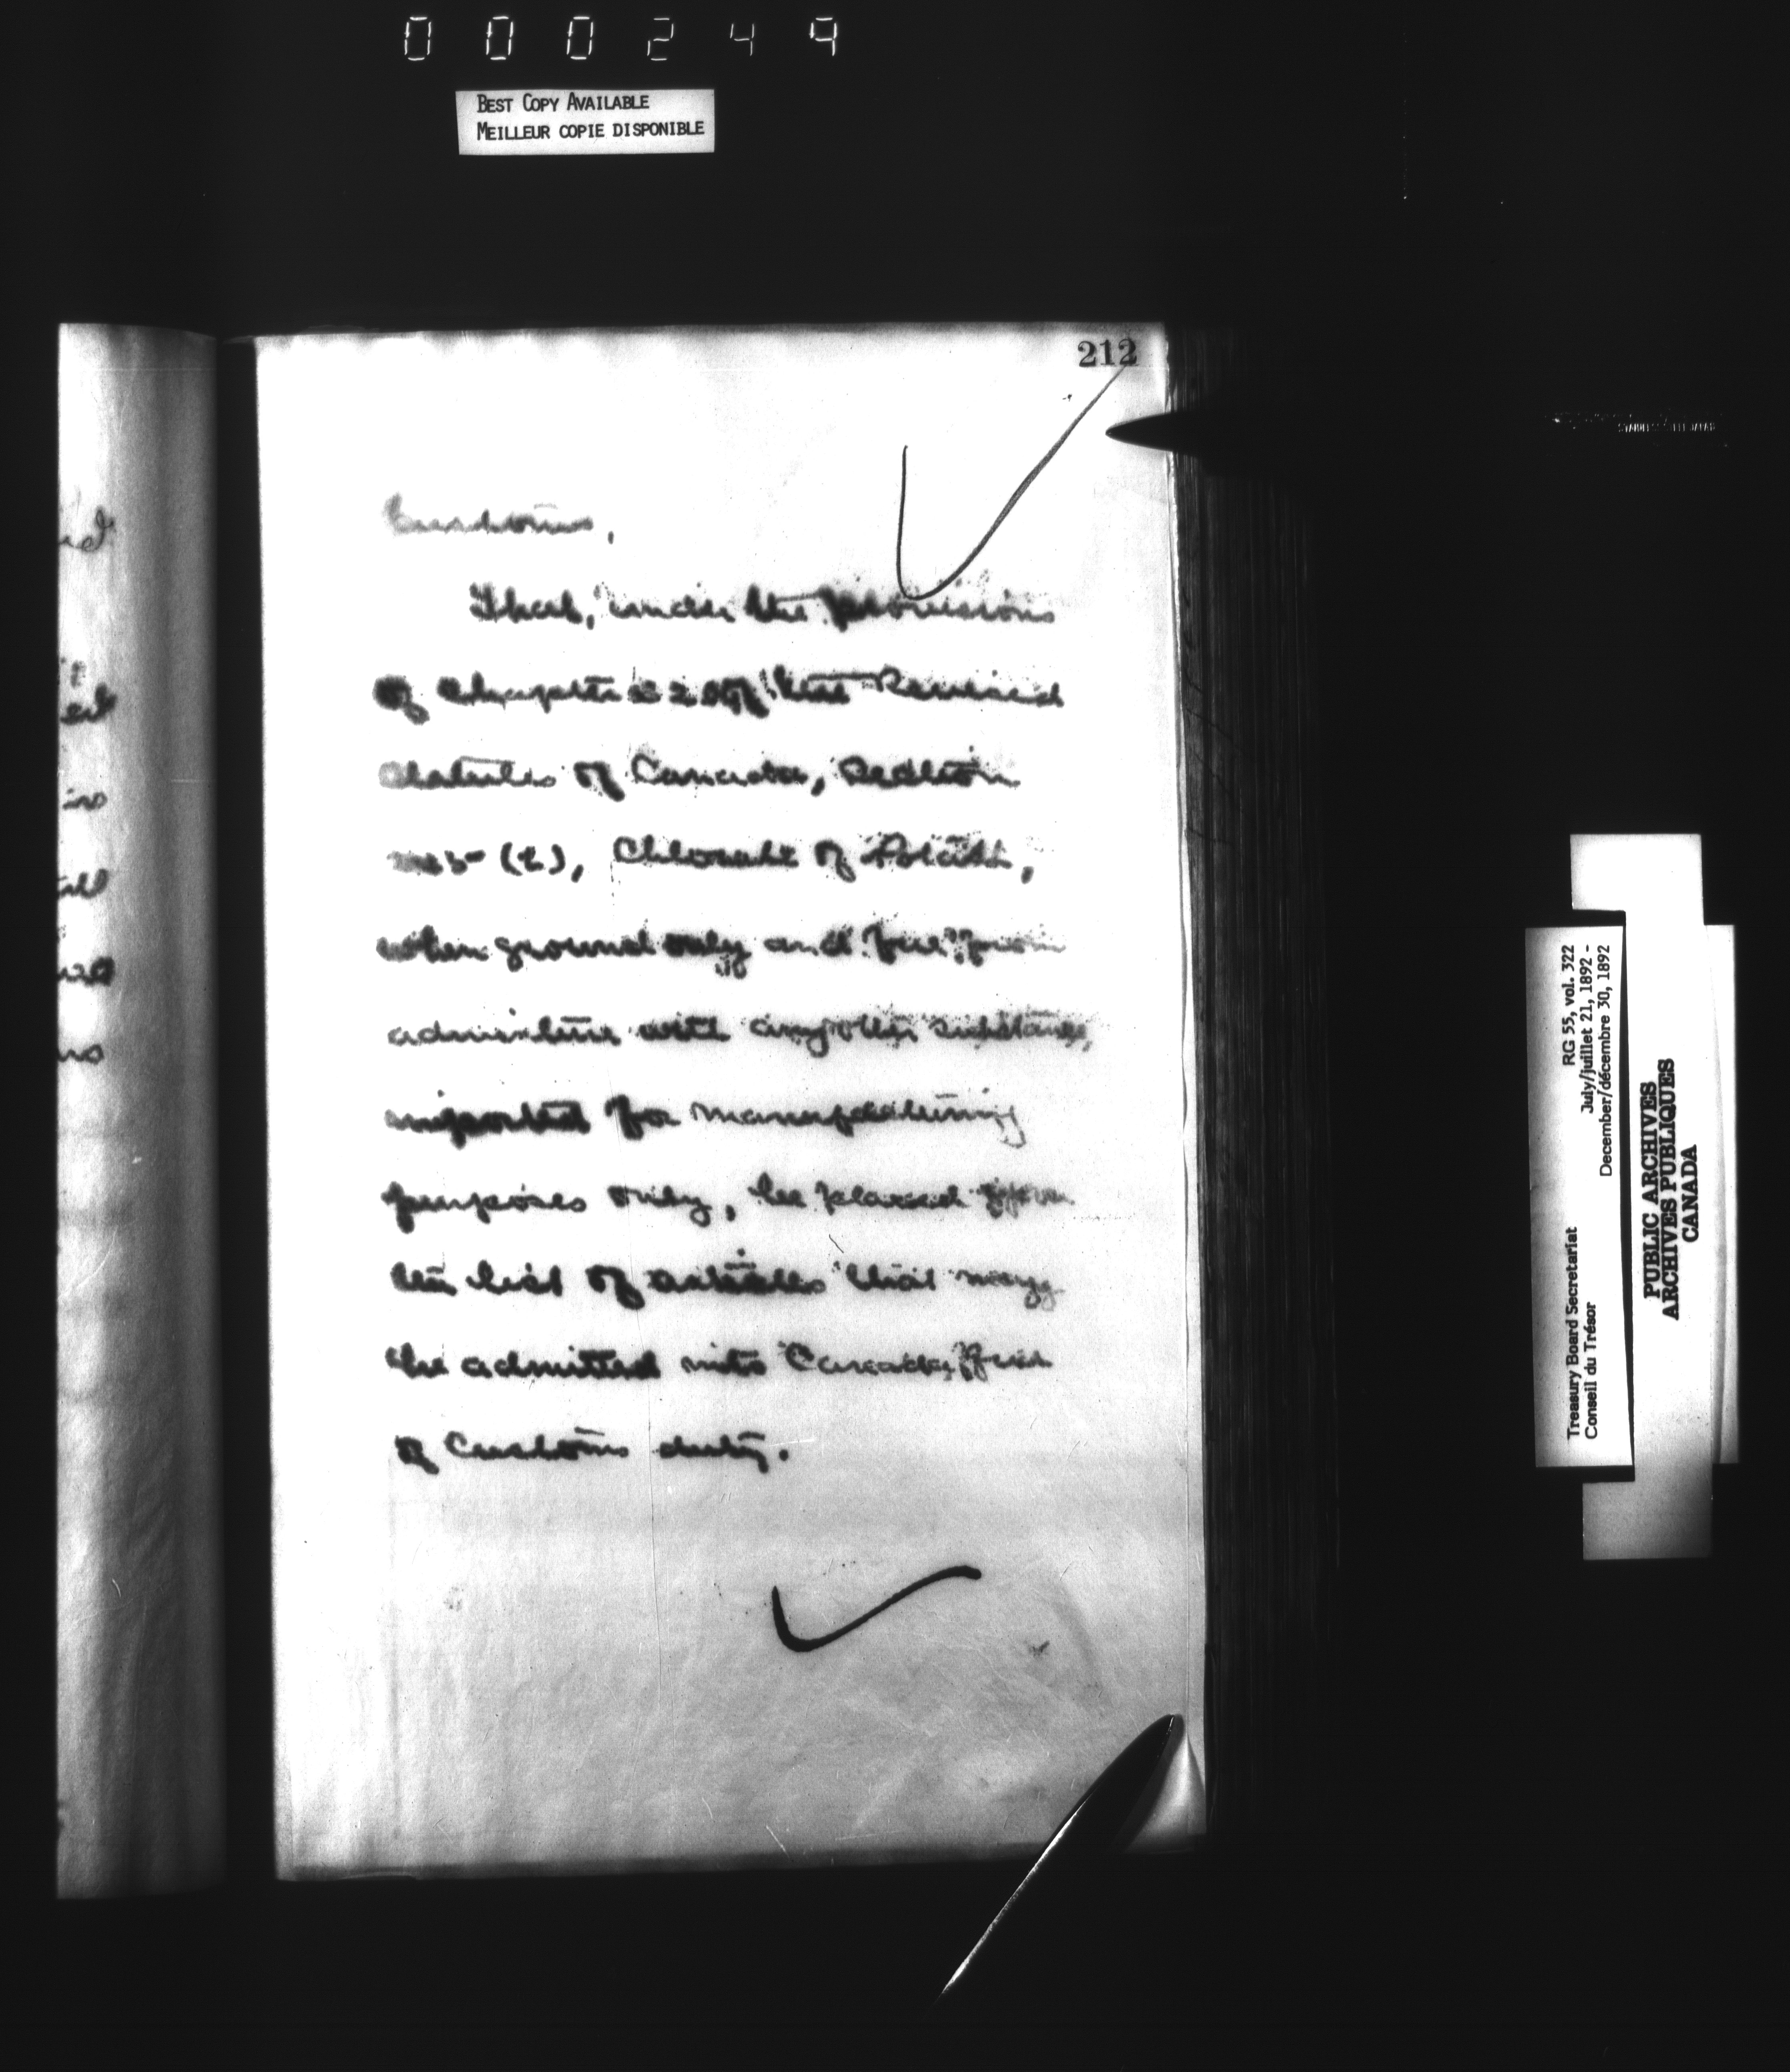 000249
BEST COPY AVAILABLE
MEILLEUR COPIE DISPONIBLE
212
Customs,
That, under the provisions
of Chapter 32 of the Revised
Statutes of Canada, Section
(2), Chlorate of Potash,
when ground only and free from
admixture with any other substance,
imported for manufacturing
purposes only, be placed upon
the list of articles that may
be admitted into Canada free
of Customs duty.
RG 55, vol. 322
July/juillet 21, 1892 -
December/décembre 30, 1892
Treasury Board Secretariat
Conseil du Trésor
PUBLIC ARCHIVES
ARCHIVES PUBLIQUES
CANADA